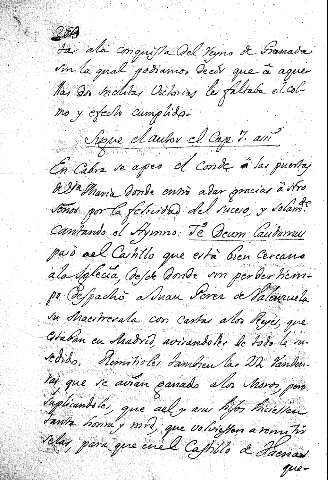 254
tas ala conquista del reyno de Granada
sin la qual podiamos decir que à aque
llas dos inclitas Victorias le faltaba el col
mo y efecto cumplido.
Sigue el autor el Cap. 7. asi
En Cabra se apeo el Conde à las puertas
de Sta. Maria donde entrò adar gracias à Nro
Señor por la felicidad del suceso, y
cantando el Hymno: Te Deum laudamus
pasó al Castillo que està bien cercano
ala Iglesia, desde donde sin perder tiem
po despachò a Juan Perez de Valenzuela
su Maestresala con cartas alos Reyes, que
estaban en Madrid, avisandoles de todo lo su
cedido. Remitioles tambien las 22 Vande
ras, que se avian ganado alos Moros, pero
suplicandoles, que ael y asus hijos hiciesen
tanta honra y mrd, que volviesen a remitir
selas, para que en el Castillo de Baena
que-